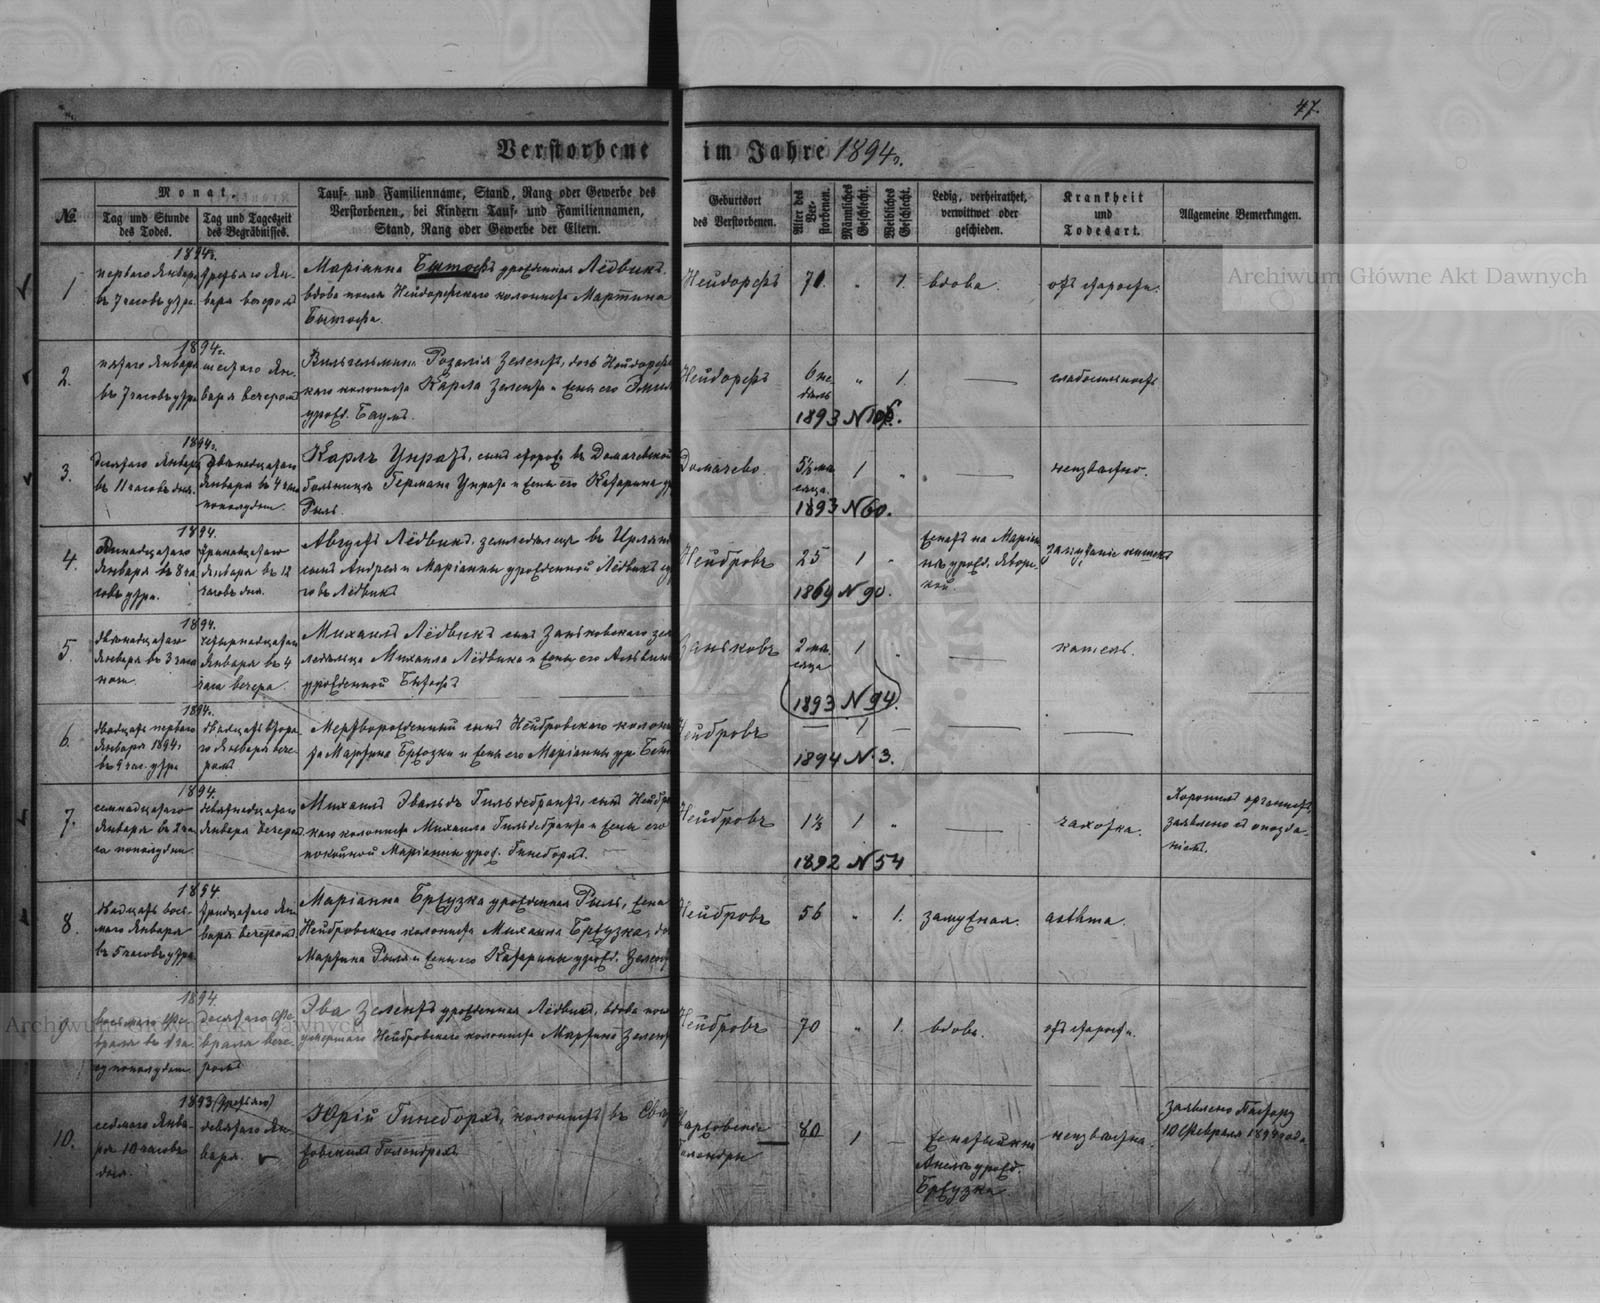 47.
Verstorbene im Jahre 1894 г.
№.
Monat.
Tag und Stunde des Todes.
Tag und Tageszeit des Begräbnisses.
Tauf- und Familienname, Stand, Rang oder Gewerbe des
Verstorbenen, bei Kindern Tauf- und Familiennamen,
Stand, Rang oder Gewerbe der Eltern.
Geburtsort
des Verstorbenen.
Alter des Verstorbenen.
Männliches Geschlecht.
Weibliches Geschlecht.
Ledig, verheirathet,
verwittwet oder
geschieden.
Krankheit
und
Todesart.
Allgemeine Bemerkungen.
1894г.
1
перваго Января
въ 7 часовъ утра
третьяго Ян-
варя вечеромъ
Маріанна Бытофъ урожденная Лёдвихъ
вдова послѣ Нейдорфскаго колониста Мартина
Бытофа.
Нейдорфъ
70.
"
1.
вдова.
отъ старости.
1894г.
2.
пятаго Января
въ 7 часовъ утра
шестаго Ян-
варя вечеромъ
Вильгельмина Розалія Зелентъ, дочь Нейдорфс
каго колониста Карла Зелента и жены его
урож. Баумъ.
Нейдорфъ
6 не-
дѣль
"
1.
1893 №
1894г.
3.
десятаго Января
въ 11 часовъ дня.
двѣнадцатаго
Января въ 4 часа
пополудни.
Карлъ Унратъ, сынъ въ Домачевской
Германа Унрата и жены его Катарины
Рыль.
Домачево.
5½ мѣ-
сяца.
1
"
1893 № 60.
неизвѣстно.
1894.
4.
одинадцатаго
Января въ 8 ча
совъ утра.
тринадцатаго
Января въ 12
часовъ дня.
Августъ Лёдвихъ, земледѣлецъ въ
сынъ Андрея и Маріанны урожденной Лёдвихъ
Нейбровъ
25
1
"
1869 № 90.
Женатъ на Маріан
нѣ урожд. Явор-
ской.
1894.
5.
двѣнадцатаго
Января въ 3 часа
ночи.
четырнадцатаго
Января въ 4
часа вечера.
Михаилъ Лёдвихъ сынъ Заньковскаго зем
ледѣльца Михаила Лёдвиха и жены его
урожденной Бытофъ
Заньковъ
2 мѣ-
сяца
1
"
1893 № 94.
кашель.
1894г.
6.
двадцать перваго
Января 1894г.
въ 9 час. утра
двадцать втора
го Января вече-
ромъ
Мертворожденный сынъ Нейбровскаго колонис
та Мартина Бржузки и жены его Маріанны ур.
Нейбровъ
1
1894 № 3.
1894.
7.
семнадцатаго
Января въ 2 ча
са пополудни.
девятнадцатаго
Января вечеромъ
Михаилъ Эвальдъ Гильдебрантъ, сынъ Нейбровс
каго колониста Михаила Гильдебранта и жены его
покойной Маріанны урож. Гинеборхъ.
Нейбровъ
1½
1
"
1892 № 54
чахотка.
Хоронилъ органистъ,
заявлено съ опозда-
ніемъ.
1894.
8.
двадцать вось-
маго Января
въ 5 часовъ утра
тридцатаго Ян-
варя вечеромъ.
Маріанна Бржузка урожденная Рыль, жена
Нейбровскаго колониста Михаила Бржузка, дочь
Мартина Рыля и жены его Катарины урожд. Зелентъ
Нейбровъ
56
"
1.
замужная.
asthma.
1894.
9
восьмаго Фев-
раля въ 1 ча
су пополудни
десятаго Фе
враля вече-
ромъ
Эва Зелентъ урожденная Лёдвихъ, вдова послѣ
умершаго Нейбровскаго колониста Мартина Зелентъ
Нейбровъ
70
"
1.
вдова.
отъ старости.
10.
1893 (третьяго)
седьмаго Янва-
ря 10 часовъ
дня.
девятаго Ян-
варя.
Юрій Гинеборхъ, колонистъ въ Свар
жовскихъ Голендрахъ
Сваржовскіе
Голендры
80
1
Женатый на
Аннѣ урожд.
Бржузка.
неизвѣстна.
Заявлено Пастору
10 Февраля 1894 года.
Archiwum Główne Akt Dawnych
Archiwum Główne Akt Dawnych